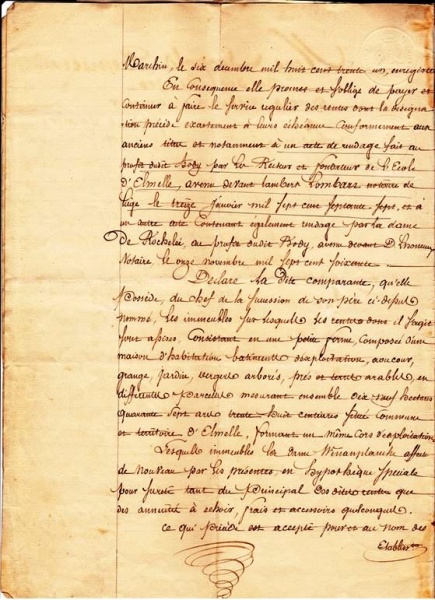 Marchin, le six décembre mil huit cent trente un, enregistré
En conséquence elle promet et s'oblige de payer et
continuer à faire le service régulier des rentes dont la désigna
tion précède exactement à leurs échéances conformément aux
anciens titres et notamment à un acte de rendage fait au
profit dudit Body par le Recteur et fondateur de l'Ecole
d'Elmelle, avenu devant Lambert notaire de
Liège le treize janvier mil sept cent septante sept, et à
un autre acte contenant également rendage par la dame
de Röckelée, au profit dudit Body, avenu devant D.
Notaire le onze novembre mil sept cent soixante
Déclare la dite comparante, qu'elle
Possède, du chef de la succession de son père ci-devant
nommé, les immeubles sur lesquels les rentes dont il s'agit
sont assises, consistant en une petite ferme, composée d'une
maison d'habitation bâtiments d'exploitation, avec cour,
grange, jardin, vergers arborés, prés et terres arables, en
différentes Parcelles mesurant ensemble dix neuf hectares
quarante sept ares trente huit centiares situé Commune
et territoire d'Elmelle, formant un même Cors d'exploitation
Lesquels immeubles la dame affecte
de nouveau par les présentes, en hypothèque spéciale
pour sureté tant du Principal des dites rentes que
des annuités à échoir, frais et accessoirs quelconques.
Ce qui précède est accepté pour et au nom des
Etabliss